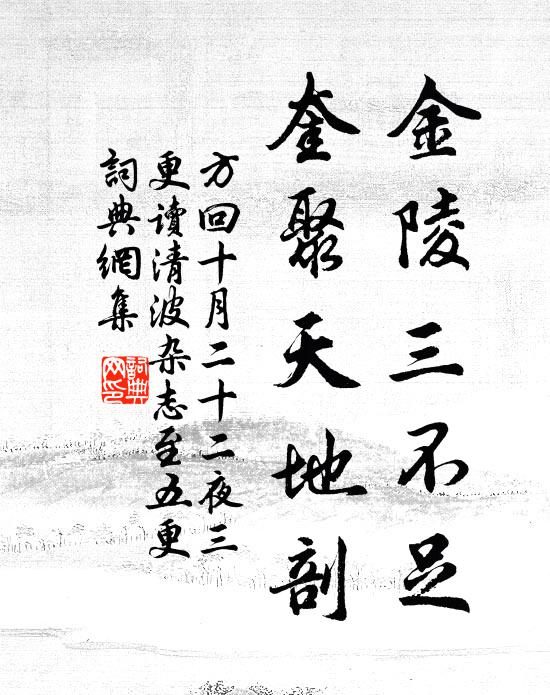 金陵三不足
奎聚天地剖
方回十月二十二夜三
更读清波杂志至五更
词典網集
詞典網印